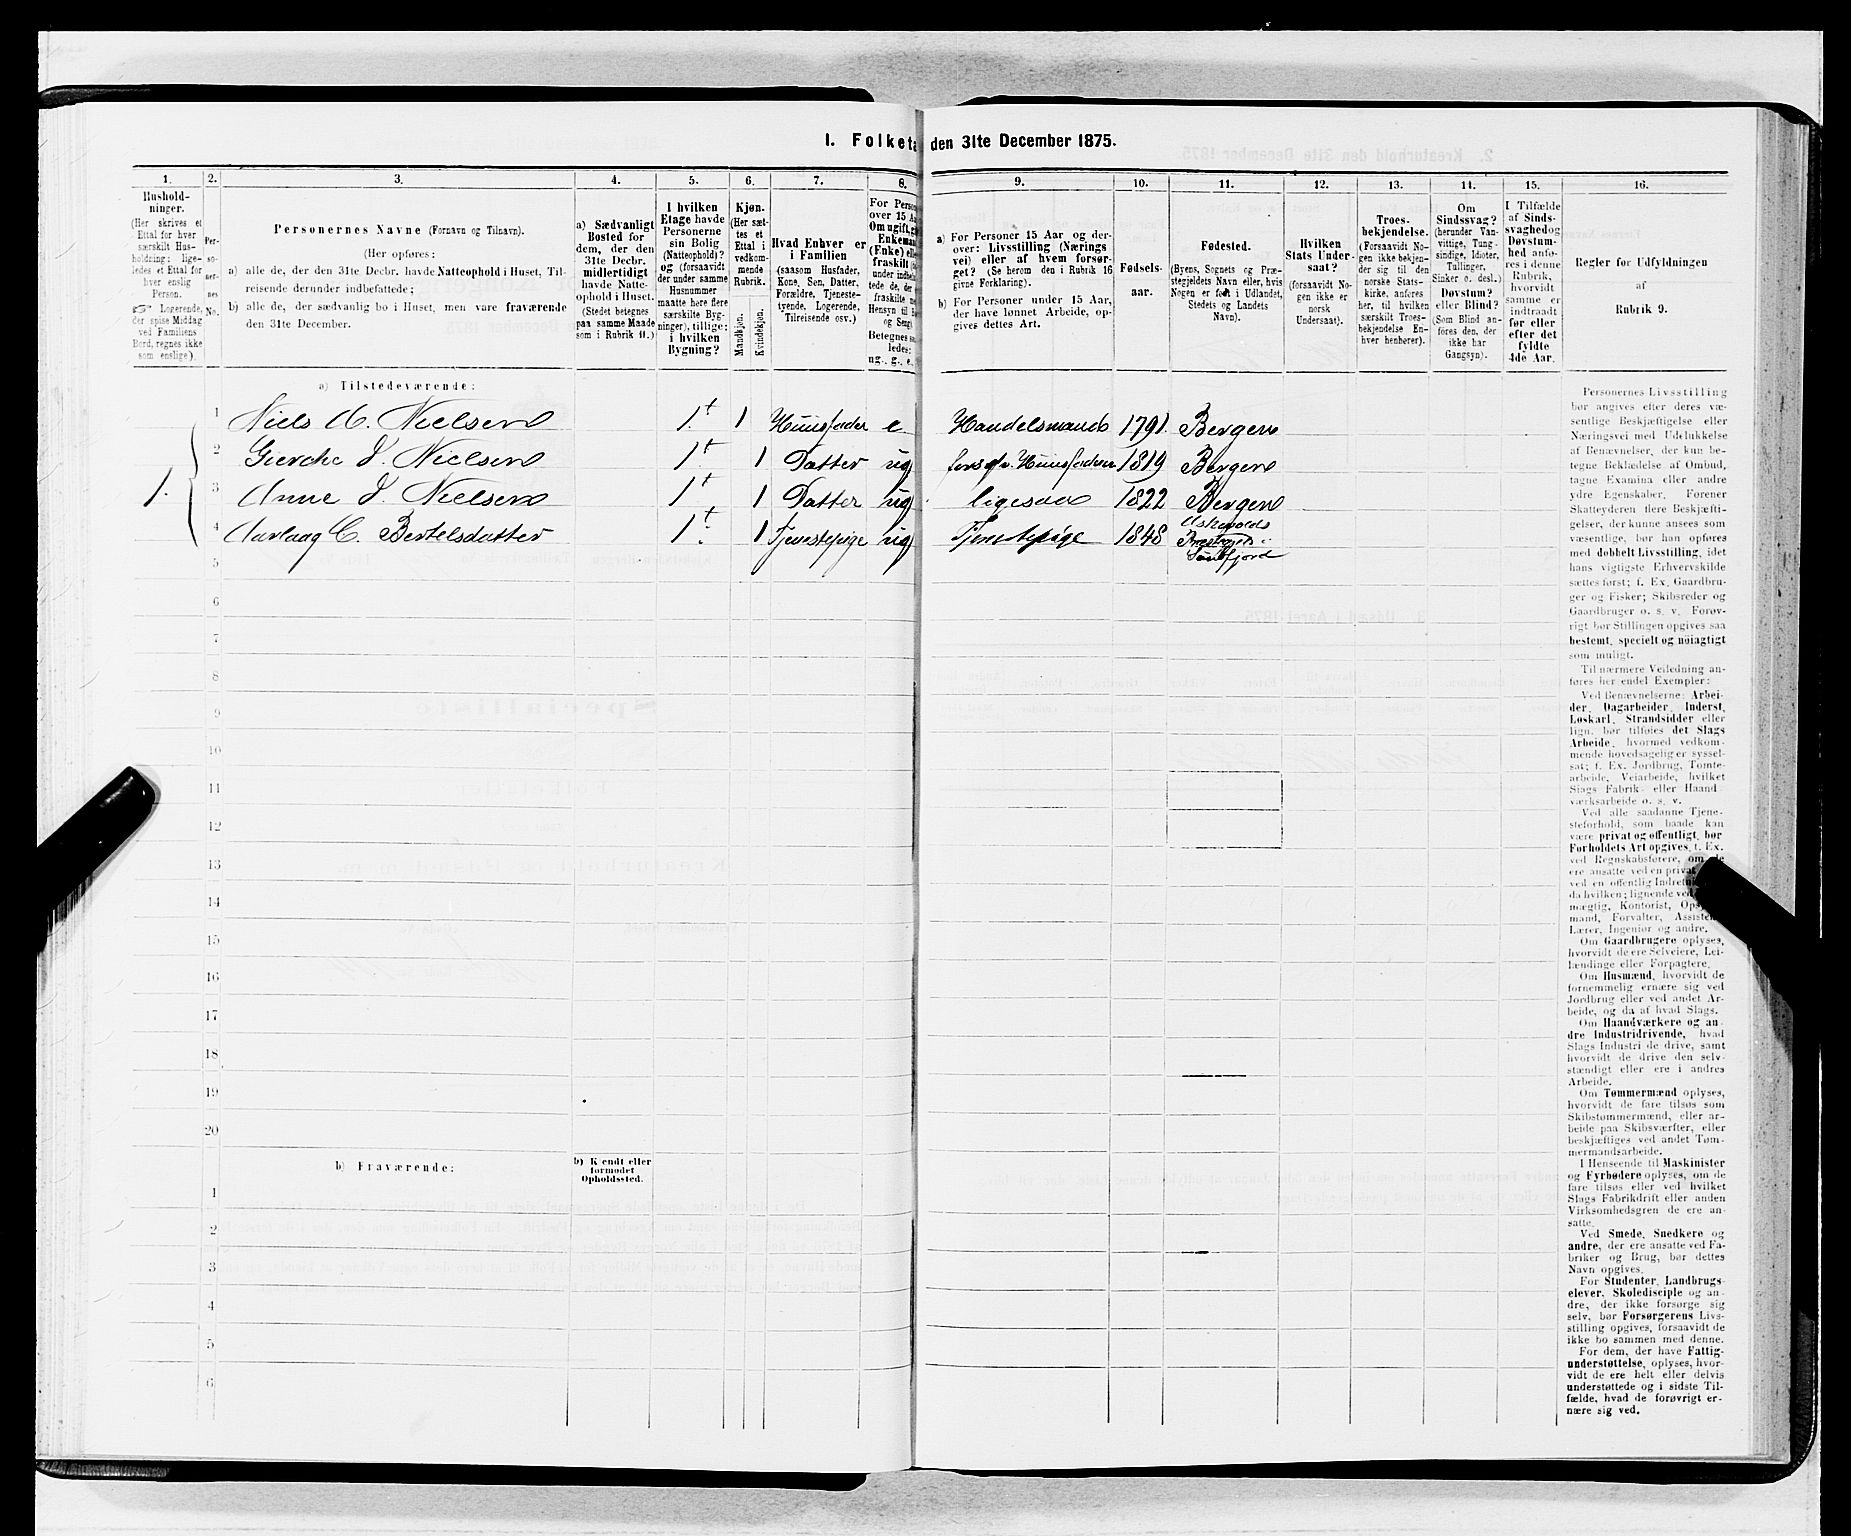 1. Folketa den 31te December 1875.
1. 2. 3. 4. 5. 6. 7. 8. 9. 10. 11. 12. 13. 14. 15. 16.
Hushold-
ninger.
(Her skrives et
Ettal for hver
særskilt Hus-
holdning; lige-
ledes et Ettal for
hver enslig
Person.
☞ Logerende,
der spise Middag
ved Familiens
Bord, regnes ikke
som enslige).
Per-
so-
ner-
nes
No.
Personernes Navne (Fornavn og Tilnavn).
(Her opføres:
a) alle de, der den 31te Decbr. havde Natteophold i Huset, Til-
reisende derunder indbefattede;
b) alle de, der sædvanlig bo i Huset, men vare fraværende
den 31te December.
a) Sædvanligt
Bosted for
dem, der den
31te Decbr.
midlertidigt
havde Natte-
ophold i Huset.
(Stedet betegnes
paa samme Maade
som i Rubrik 11.)
I hvilken
Etage havde
Personerne
sin Bolig
(Natteophold)?
og (forsaavidt
der under samme
Husnummer
maatte høre flere
særskilte Byg-
ninger), tillige:
i hvilken
Bygning?
Kjøn.
(Her sæt-
tes et
Ettal i
vedkom-
mende
Rubrik.
Mandkjøn.
Kvindekjøn.
Hvad Enhver er
i Familien
(saasom Husfader,
Kone, Søn, Datter,
Forældre, Tjeneste-
tyende, Logerende,
Tilreisende osv.)
For Person
over 15 Aa
Om ugift, gi
Enkeman
(Enke) elle
fraskilt
under indbe
tede de, de
fraskilte
Hensyn til B
og Seng)
Betegnes
ledes:
ug., g., e.
a) For Personer 15 Aar og der-
over: Livsstilling (Nærings
vei) eller af hvem forsør-
get? (Se herom den i Rubrik 16
givne Forklaring).
b) For Personer under 15 Aar,
der have lønnet Arbeide, op-
gives dettes Art.
Fødsels-
aar.
Fødested.
(Byens, Sognets og Præ-
stegjeldets Navn eller, hvis
Nogen er født i Udlandet,
Stedets og Landets
Navn).
Hvilken
Stats Under-
saat?
(forsaavidt No-
gen ikke er
norsk
Undersaat).
Troes-
bekjendelse.
(Forsaavidt No-
gen ikke bekjen-
der sig til den
norske Stats-
kirke, anføres
her, til hvilken
særskilt Troes-
bekjendelse En-
hver henhører).
Om
Sindssvag?
(herunder Van-
vittige, Tung-
sindige, Idioter,
Tullinger,
Sinker o. desl.)
Døvstum?
eller Blind?
(Som Blind an-
føres den, der
ikke har
Gangsyn).
I Tilfælde
af Sinds-
svaghed og
Døvstum-
hed anfø-
res i denne
Rubrik,
hvorvidt
samme er
indtraadt
før eller
efter det
fyldte
4de Aar.
Regler for Udfyldningen
af
Rubrik 9.
a) Tilstedeværende:
1. 1 Niels M. Nielsen 1. 1 Huusfader e Handelsmand 1791. Bergen
2 Giercke D. Nielsen 1 1 Datter ug fors. af. Huusfaderen 1819 Bergen
3 Anne D. Nielsen 1 1 Datter ug ligesaa 1822 Bergen
4 Aarlaag C. Bertelsdatter 1 1 Tjenestepige ug Tjenestepige 1848 Askevolds
Præstegjeld i
Søndfjord
5
6
7
8
9
10
11
12
13
14
15
16
17
18
19
20
b) Fraværende:
b) Kjendt eller
formodet
Opholdssted.
1
2
3
4
5
6
Personernes Livsstilling
bør angives efter deres væ-
sentlige Beskjæftigelse eller
Næringsvei med Udelukkelse
af Benævnelser, der kun be-
tegne Beklædelse af Ombud,
tagne Examina eller andre
ydre Egenskaber. Forener
Skatteyderen flere Beskjæfti-
gelser, der kunne ansees som
væsentlige, bør han opføres
med dobbelt Livsstilling, idet
hans vigtigste Erhvervskilde
sættes først; f. Ex. Gaardbru-
ger og Fisker; Skibsreder og
Gaardbruger o. s. v. Forøv-
rigt bør Stillingen opgives saa
bestemt, specielt og nøiagtigt
som muligt.
Til nærmere Veiledning an-
føres her endel Exempler:
Ved Benævnelserne: Arbei-
der, Dagarbeider, Inderst,
Løskarl, Strandsidder eller
lign. bør tilføies det Slags
Arbeide, hvormed vedkom-
mende hovedsagelig er syssel-
sat; f. Ex. Jordbrug, Tomte-
arbeide, Veiarbeide, hvilket
Slags Fabrik- eller Haand-
værksarbeide o. s. v.
Ved alle saadanne Tjene-
steforhold, som baade kan
være privat og offentligt, bør
Forholdets Art opgives, f. Ex.
ved Regnskabsførere, om de
ere ansatte ved en privat
ved en offentlig
da hvilken; lignende ved
mægtig, Kontorist,
mand, Forvalter,
Lærer, Ingeniør og andre.
Om Gaardbrugere oplyses,
hvorvidt de ere Selveiere, Lei-
lændinge eller Forpagtere.
Om Husmænd, hvorvidt de
fornemmelig ernære sig ved
Jordbrug eller ved andet Ar-
beide, og da af hvad Slags.
Om Haandværkere og an
dre Industridrivende, hvad
Slags Industri de drive, samt
hvorvidt de drive den selv-
stændigt eller ere i andres
Arbeide.
Om Tømmermænd oplyses,
hvorvidt de fare tilsøs som
Skibstømmermænd, eller ar-
beide paa Skibsværfter, eller
beskjæftiges ved andet Tøm-
mermandsarbeide.
I Henseende til Maskinister
og Fyrbødere oplyses, om de
fare tilsøs eller ved hvilket
Slags Fabrikdrift eller anden
Virksomhedsgren de ere an-
satte.
Ved Smede, Snedkere og
andre, der ere ansatte ved Fa-
briker og Brug, bør dettes
Navn opgives.
For Studenter, Landbrugs-
elever, Skoledisciple og an-
dre, der ikke forsørge sig
selv, bør Forsørgerens Livs-
stilling opgives, forsaavidt de
ikke bo sammen med denne.
For dem, der have Fattig-
understøttelse, oplyses, hvor-
vidt de ere helt eller delvis
understøttede og i sidste Til-
fælde, hvad de forøvrigt er-
nære sig ved.